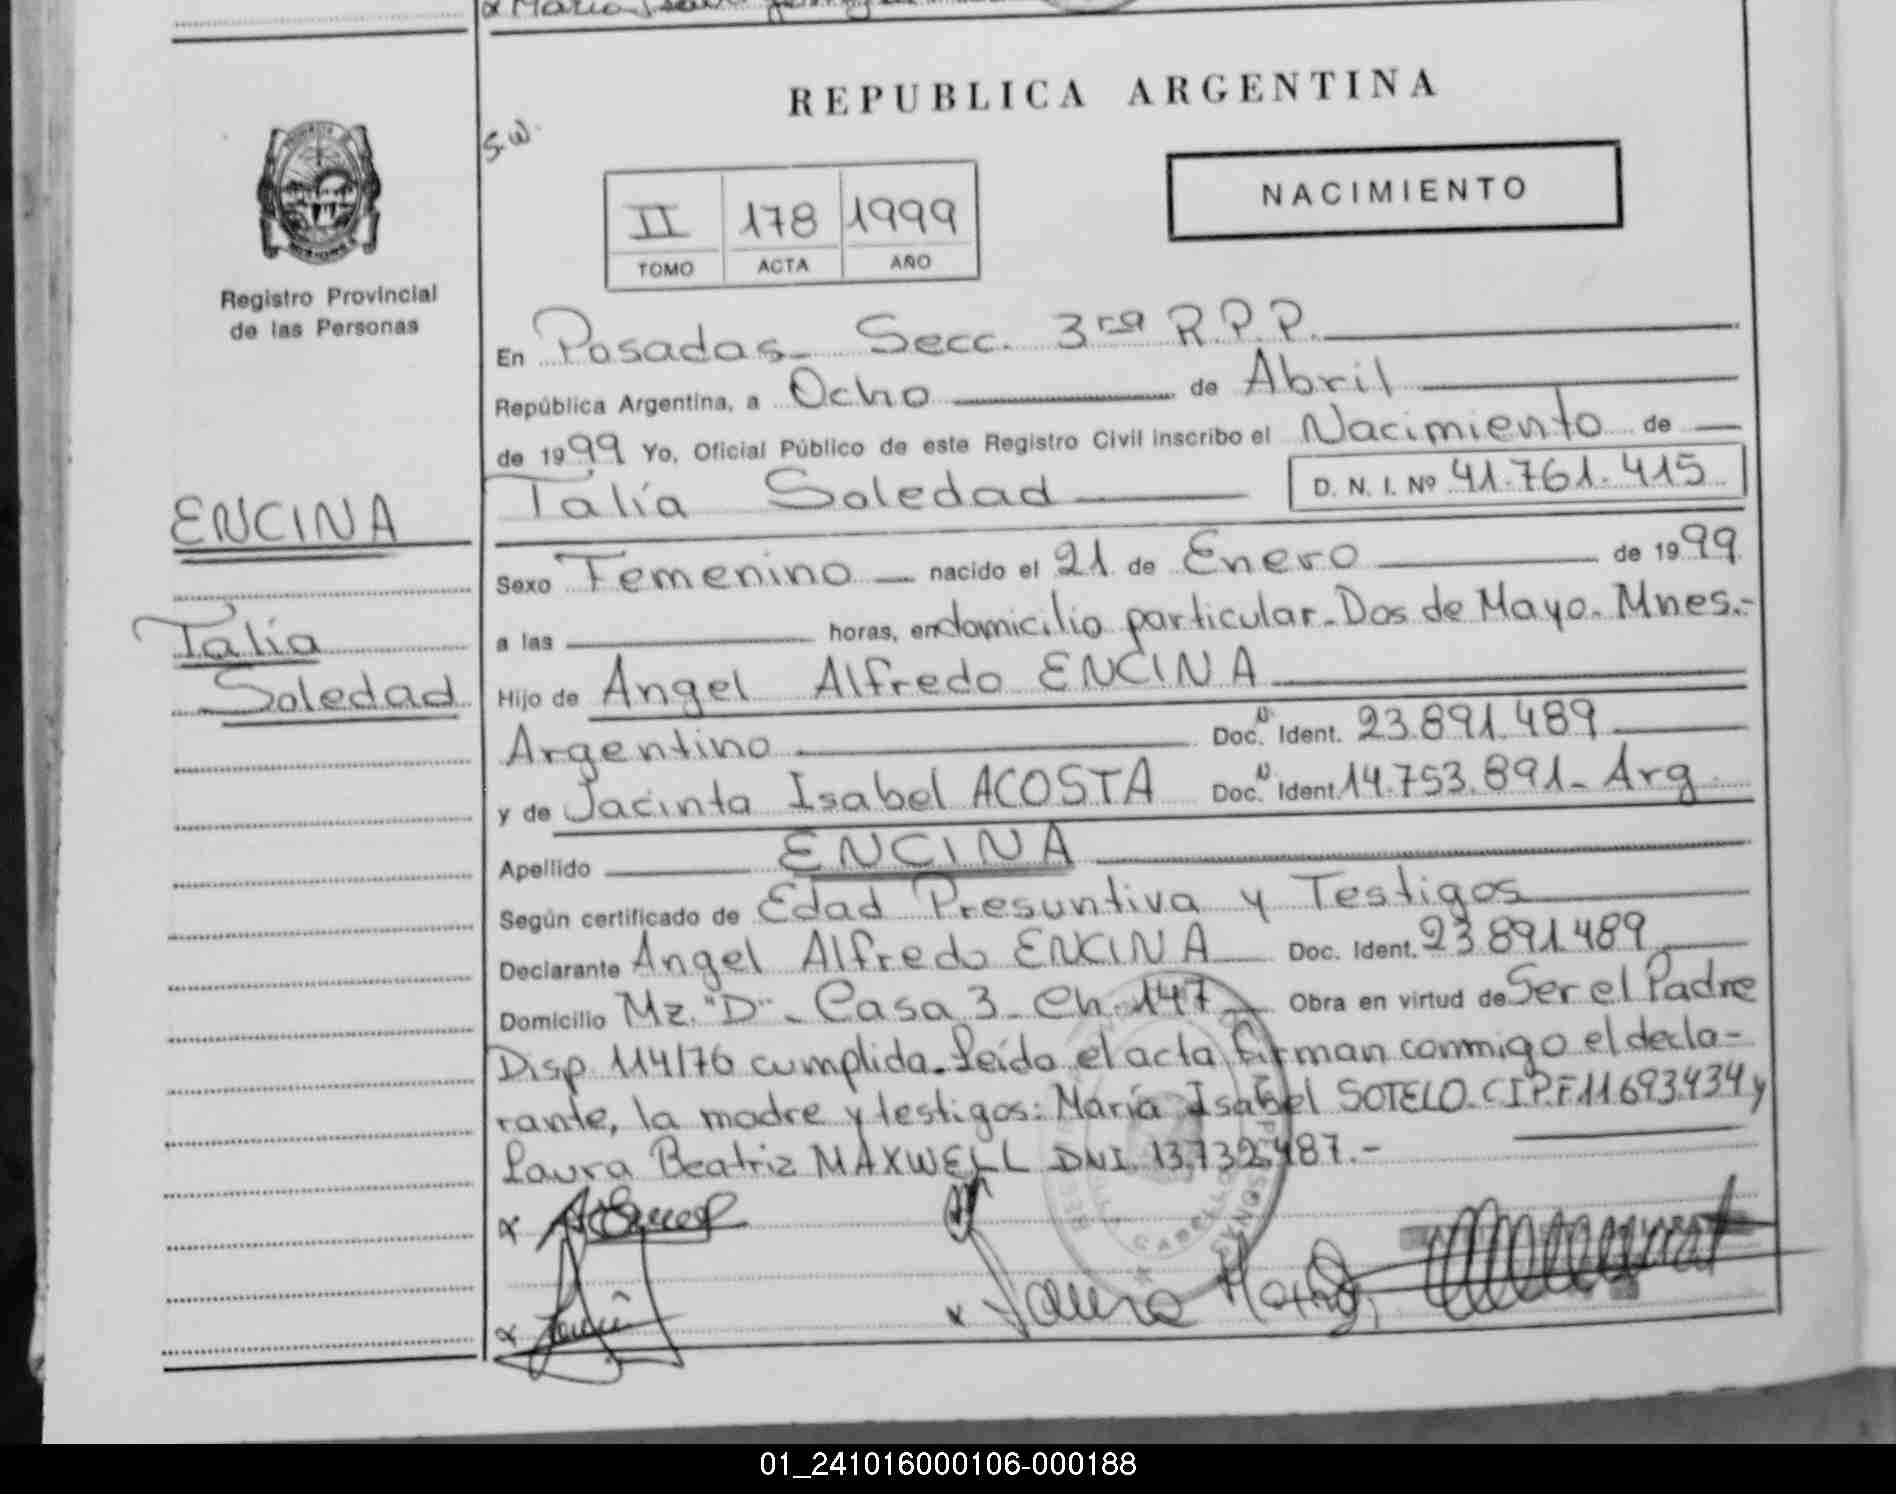 REPUBLICA ARGENTINA
S.W.
NACIMIENTO
II 178 1999
TOMO ACTA AÑO
Registro Provincial
de las Personas
En Posadas - Secc. 3ra R.P.P.
República Argentina, a Ocho de Abril
de 1999 Yo, Oficial Público de este Registro Civil inscribo el Nacimiento de
Talía Soledad D. N. I. Nº 41.761.415
ENCINA
Talía
Soledad
Sexo Femenino nacido el 21 de Enero de 1999
a las horas, en domicilio particular - Dos de Mayo - Mnes.-
Hijo de Angel Alfredo ENCINA
Argentino Doc. Ident. 23.891.489
y de Jacinta Isabel ACOSTA Doc. Ident. 14.753.891 - Arg.
Apellido ENCINA
Según certificado de Edad Presuntiva y Testigos
Declarante Angel Alfredo ENCINA Doc. Ident. 23.891.489
Domicilio Mz. "D" - Casa 3 - Ch. 147 Obra en virtud de Ser el Padre
Disp. 114/76 cumplida. Leída el acta firman conmigo el decla-
rante, la madre y testigos: María Isabel SOTELO. C.I.P.F. 11.693.434 y
Laura Beatriz MAXWELL DNI. 13.732.487.-
01_241016000106-000188